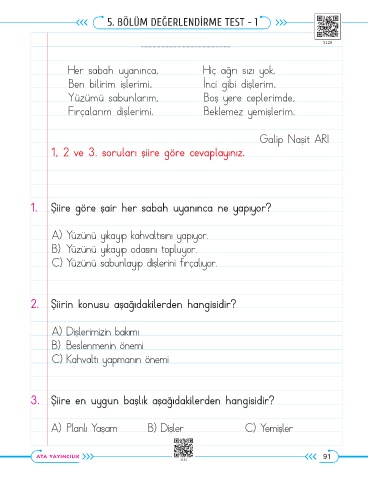 5. BÖLÜM DEĞERLENDİRME TEST - 1
Her sabah uyanınca,
Ben bilirim işlerimi,
Yüzümü sabunlarım,
Fırçalarım dişlerimi.
Hiç ağrı sızı yok,
İnci gibi dişlerim.
Boş yere ceplerimde,
Beklemez yemişlerim.
Galip Naşit ARI
1, 2 ve 3. soruları şiire göre cevaplayınız.
1. Şiire göre şair her sabah uyanınca ne yapıyor?
A) Yüzünü yıkayıp kahvaltısını yapıyor.
B) Yüzünü yıkayıp odasını topluyor.
C) Yüzünü sabunlayıp dişlerini fırçalıyor.
2. Şiirin konusu aşağıdakilerden hangisidir?
A) Dişlerimizin bakımı
B) Beslenmenin önemi
C) Kahvaltı yapmanın önemi
3. Şiire en uygun başlık aşağıdakilerden hangisidir?
A) Planlı Yaşam B) Dişler C) Yemişler
ATA YAYINCILIK
91